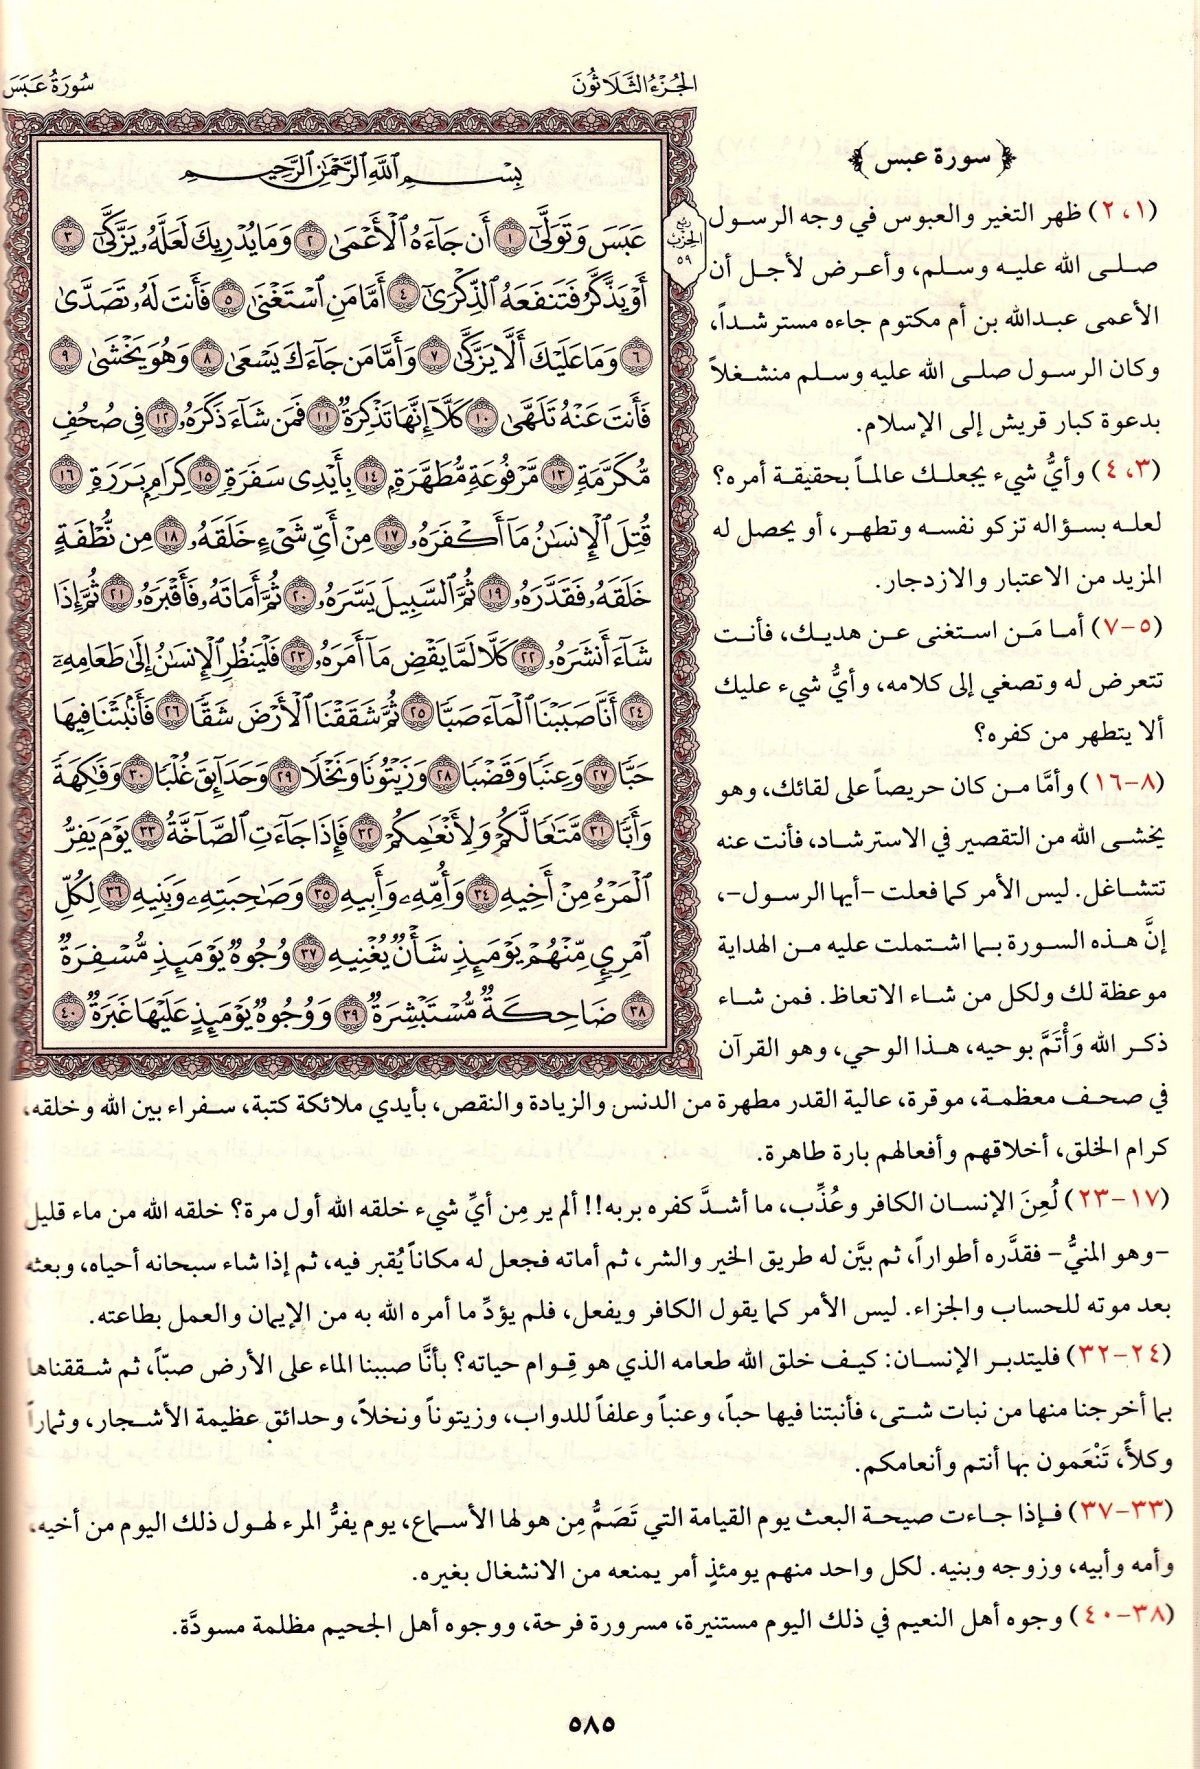 الجُزءُ الثَّلَاثُونَ
سُورَةُ عَبَسَ
بِسْمِ ٱللَّهِ ٱلرَّحْمَٰنِ ٱلرَّحِيمِ
عَبَسَ وَتَوَلَّىٰٓ ١ أَن جَآءَهُ ٱلْأَعْمَىٰ ٢ وَمَا يُدْرِيكَ لَعَلَّهُۥ يَزَّكَّىٰٓ ٣
أَوْ يَذَّكَّرُ فَتَنفَعَهُ ٱلذِّكْرَىٰٓ ٤ أَمَّا مَنِ ٱسْتَغْنَىٰ ٥ فَأَنتَ لَهُۥ تَصَدَّىٰ
٦ وَمَا عَلَيْكَ أَلَّا يَزَّكَّىٰ ٧ وَأَمَّا مَن جَآءَكَ يَسْعَىٰ ٨ وَهُوَ يَخْشَىٰ ٩
فَأَنتَ عَنْهُ تَلَهَّىٰ ١٠ كَلَّآ إِنَّهَا تَذْكِرَةٌ ١١ فَمَن شَآءَ ذَكَرَهُۥ ١٢ فِى صُحُفٍ
مُّكَرَّمَةٍ ١٣ مَّرْفُوعَةٍ مُّطَهَّرَةٍۭ ١٤ بِأَيْدِى سَفَرَةٍ ١٥ كِرَامٍۭ بَرَرَةٍ ١٦
قُتِلَ ٱلْإِنسَٰنُ مَآ أَكْفَرَهُۥ ١٧ مِنْ أَىِّ شَىْءٍ خَلَقَهُۥ ١٨ مِن نُّطْفَةٍ
خَلَقَهُۥ فَقَدَّرَهُۥ ١٩ ثُمَّ ٱلسَّبِيلَ يَسَّرَهُۥ ٢٠ ثُمَّ أَمَاتَهُۥ فَأَقْبَرَهُۥ ٢١ ثُمَّ إِذَا
شَآءَ أَنشَرَهُۥ ٢٢ كَلَّا لَمَّا يَقْضِ مَآ أَمَرَهُۥ ٢٣ فَلْيَنظُرِ ٱلْإِنسَٰنُ إِلَىٰ طَعَامِهِۦٓ
٢٤ أَنَّا صَبَبْنَا ٱلْمَآءَ صَبًّا ٢٥ ثُمَّ شَقَقْنَا ٱلْأَرْضَ شَقًّا ٢٦ فَأَنۢبَتْنَا فِيهَا
حَبًّا ٢٧ وَعِنَبًا وَقَضْبًا ٢٨ وَزَيْتُونًا وَنَخْلًا ٢٩ وَحَدَآئِقَ غُلْبًا ٣٠ وَفَٰكِهَةً
وَأَبًّا ٣١ مَّتَٰعًا لَّكُمْ وَلِأَنْعَٰمِكُمْ ٣٢ فَإِذَا جَآءَتِ ٱلصَّآخَّةُ ٣٣ يَوْمَ يَفِرُّ
ٱلْمَرْءُ مِنْ أَخِيهِ ٣٤ وَأُمِّهِۦ وَأَبِيهِ ٣٥ وَصَٰحِبَتِهِۦ وَبَنِيهِ ٣٦ لِكُلِّ
ٱمْرِئٍ مِّنْهُمْ يَوْمَئِذٍ شَأْنٌ يُغْنِيهِ ٣٧ وُجُوهٌ يَوْمَئِذٍ مُّسْفِرَةٌ
٣٨ ضَاحِكَةٌ مُّسْتَبْشِرَةٌ ٣٩ وَوُجُوهٌ يَوْمَئِذٍ عَلَيْهَا غَبَرَةٌ ٤٠
ربع
الحزب
٥٩
﴿سورة عبس﴾
(١، ٢) ظهر التغير والعبوس في وجه الرسول
صلى الله عليه وسلم، وأعرض لأجل أن
الأعمى عبدالله بن أم مكتوم جاءه مسترشداً،
وكان الرسول صلى الله عليه وسلم منشغلاً
بدعوة كبار قريش إلى الإسلام.
(٣، ٤) وأيُّ شيء يجعلك عالماً بحقيقة أمره؟
لعله بسؤاله تزكو نفسه وتطهر، أو يحصل له
المزيد من الاعتبار والازدجار.
(٥-٧) أما مَن استغنى عن هديك، فأنت
تتعرض له وتصغي إلى كلامه، وأيُّ شيء عليك
ألا يتطهر من كفره؟
(٨-١٦) وأمَّا من كان حريصاً على لقائك، وهو
يخشى الله من التقصير في الاسترشاد، فأنت عنه
تتشاغل. ليس الأمر كما فعلت -أيها الرسول-،
إنَّ هذه السورة بما اشتملت عليه من الهداية
موعظة لك ولكل من شاء الاتعاظ. فمن شاء
ذكر الله وَأْتَمَّ بوحيه، هذا الوحي، وهو القرآن
في صحف معظمة، موقرة، عالية القدر مطهرة من الدنس والزيادة والنقص، بأيدي ملائكة كتبة، سفراء بين الله وخلقه،
كرام الخلق، أخلاقهم وأفعالهم بارة طاهرة.
(١٧-٢٣) لُعِنَ الإنسان الكافر وعُذِّب، ما أشدَّ كفره بربه!! ألم ير مِن أيِّ شيء خلقه الله أول مرة؟ خلقه الله من ماء قليل
-وهو المنيُّ- فقدَّره أطواراً، ثم بيَّن له طريق الخير والشر، ثم أماته فجعل له مكاناً يُقبر فيه، ثم إذا شاء سبحانه أحياه، وبعثه
بعد موته للحساب والجزاء. ليس الأمر كما يقول الكافر ويفعل، فلم يؤدِّ ما أمره الله به من الإيمان والعمل بطاعته.
(٢٤-٣٢) فليتدبر الإنسان: كيف خلق الله طعامه الذي هو قِوام حياته؟ بأنَّا صببنا الماء على الأرض صبّاً، ثم شققناها
بما أخرجنا منها من نبات شتى، فأنبتنا فيها حباً، وعنباً وعلفاً للدواب، وزيتوناً ونخلاً، وحدائق عظيمة الأشجار، وثماراً
وكلأً، تَنْعَمون بها أنتم وأنعامكم.
(٣٣-٣٧) فإذا جاءت صيحة البعث يوم القيامة التي تَصَمُّ مِن هولها الأسماع، يوم يفرُّ المرء لهول ذلك اليوم من أخيه،
وأمه وأبيه، وزوجه وبنيه. لكل واحد منهم يومئذٍ أمر يمنعه من الانشغال بغيره.
(٣٨-٤٠) وجوه أهل النعيم في ذلك اليوم مستنيرة، مسرورة فرحة، ووجوه أهل الجحيم مظلمة مسودَّة.
٥٨٥